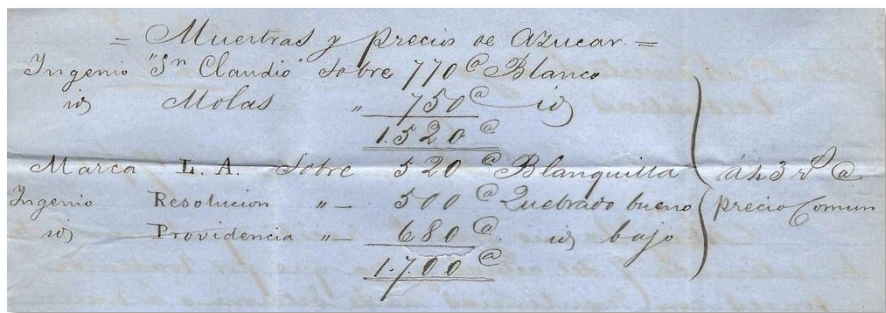 = Muestras y precios de azucar =
Ingenio "Sn Claudio" Sobre 770 @ Blanco
id Molas " 750 @ id
1.520 @
Marca L. A. Sobre 520 @ Blanquilla á 43 rs @
Ingenio Resolucion " — 500 @ Quebrado bueno precio Comun
id Providencia " — 680 @ id bajo
1.700 @